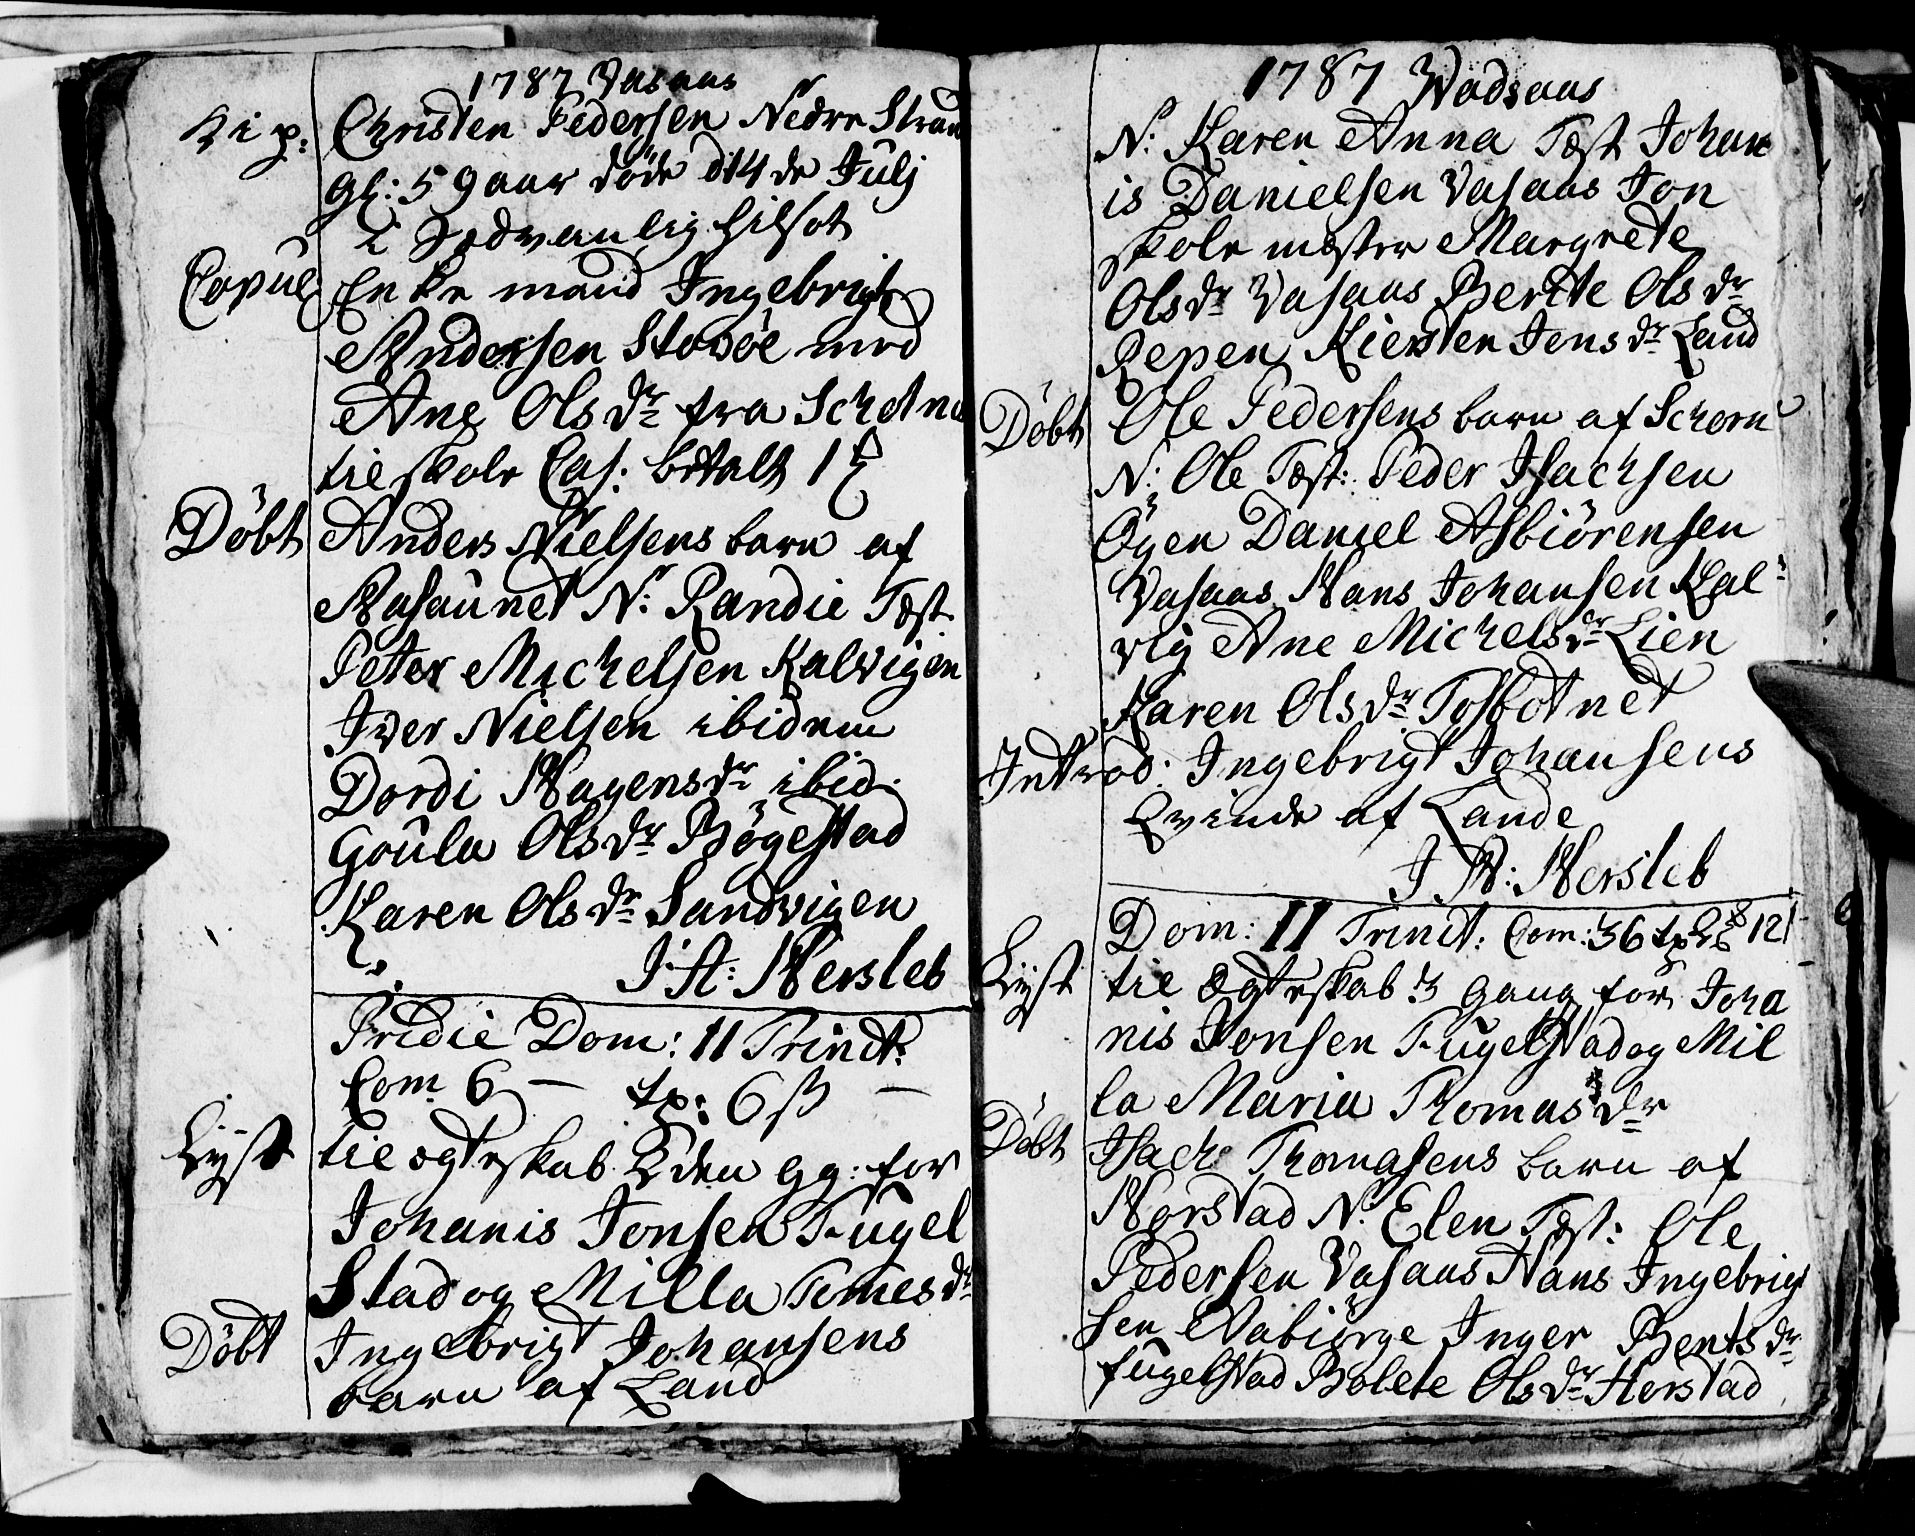 1787 Vasaas
R i p: Christen Pedersen Nedre Stran
gl: 59 aar døde d 14 de Julj
i Sædvanlig hilsot
Copul Enke mand Ingebrigt
Andersen Stosöe med
Ane Ols dr fra Schotne
til skole Cas: betalt 1
Döbt Anders Nielsens barn af
Aasaunet N: Randie Test
Peter Michelsen Kalvigen
Iver Nielsen ibidem
Dordi Hagens dr ibid.
Goula Ols dr Bögestad
Karen Ols dr Sandvigen
J: A: Hersleb
Pridie Dom: 11 Trinit:
Com 6 — tp: 6 ß —
Lyst til ægteskab 2den gg: for
Johanis Jonsen Fugel
Stad og Milla Tomes dr
Döbt Ingebrigt Johansens
barn af Land
1787 Vadsaas
N: Karen Anna Test Johan
is Danielsen Vasaas Jon
skole mester Margrete
Ols dr Vasaas Berete Ols dr
Repen Kiersten Jens dr Land
Döbt Ole Pedersens barn af Schorn
N: Ole Test: Peder Isachsen
Öyen Daniel Asbiörensen
Vasaas Hans Johansen Kal-
vig Ane Michels dr Lien
Karen Ols dr Tosbotnet
Introd: Ingebrigt Johansens
Qvinde af Lande
J A: Hersleb
Dom: 11 Trinit: Com: 36 tp 121
Lyst til ægteskab 3 gang for Joha
nis Jonsen Fugelstad og Mil
la Maria Thomas dr
Döbt Isach Thomasens barn af
Horstad N: Elen Test: Ole
Pedersen Vasaas Hans Ingebrigt
sen Nabiörge Inger Bents dr
fugelstad Bolete Ols dr Horstad